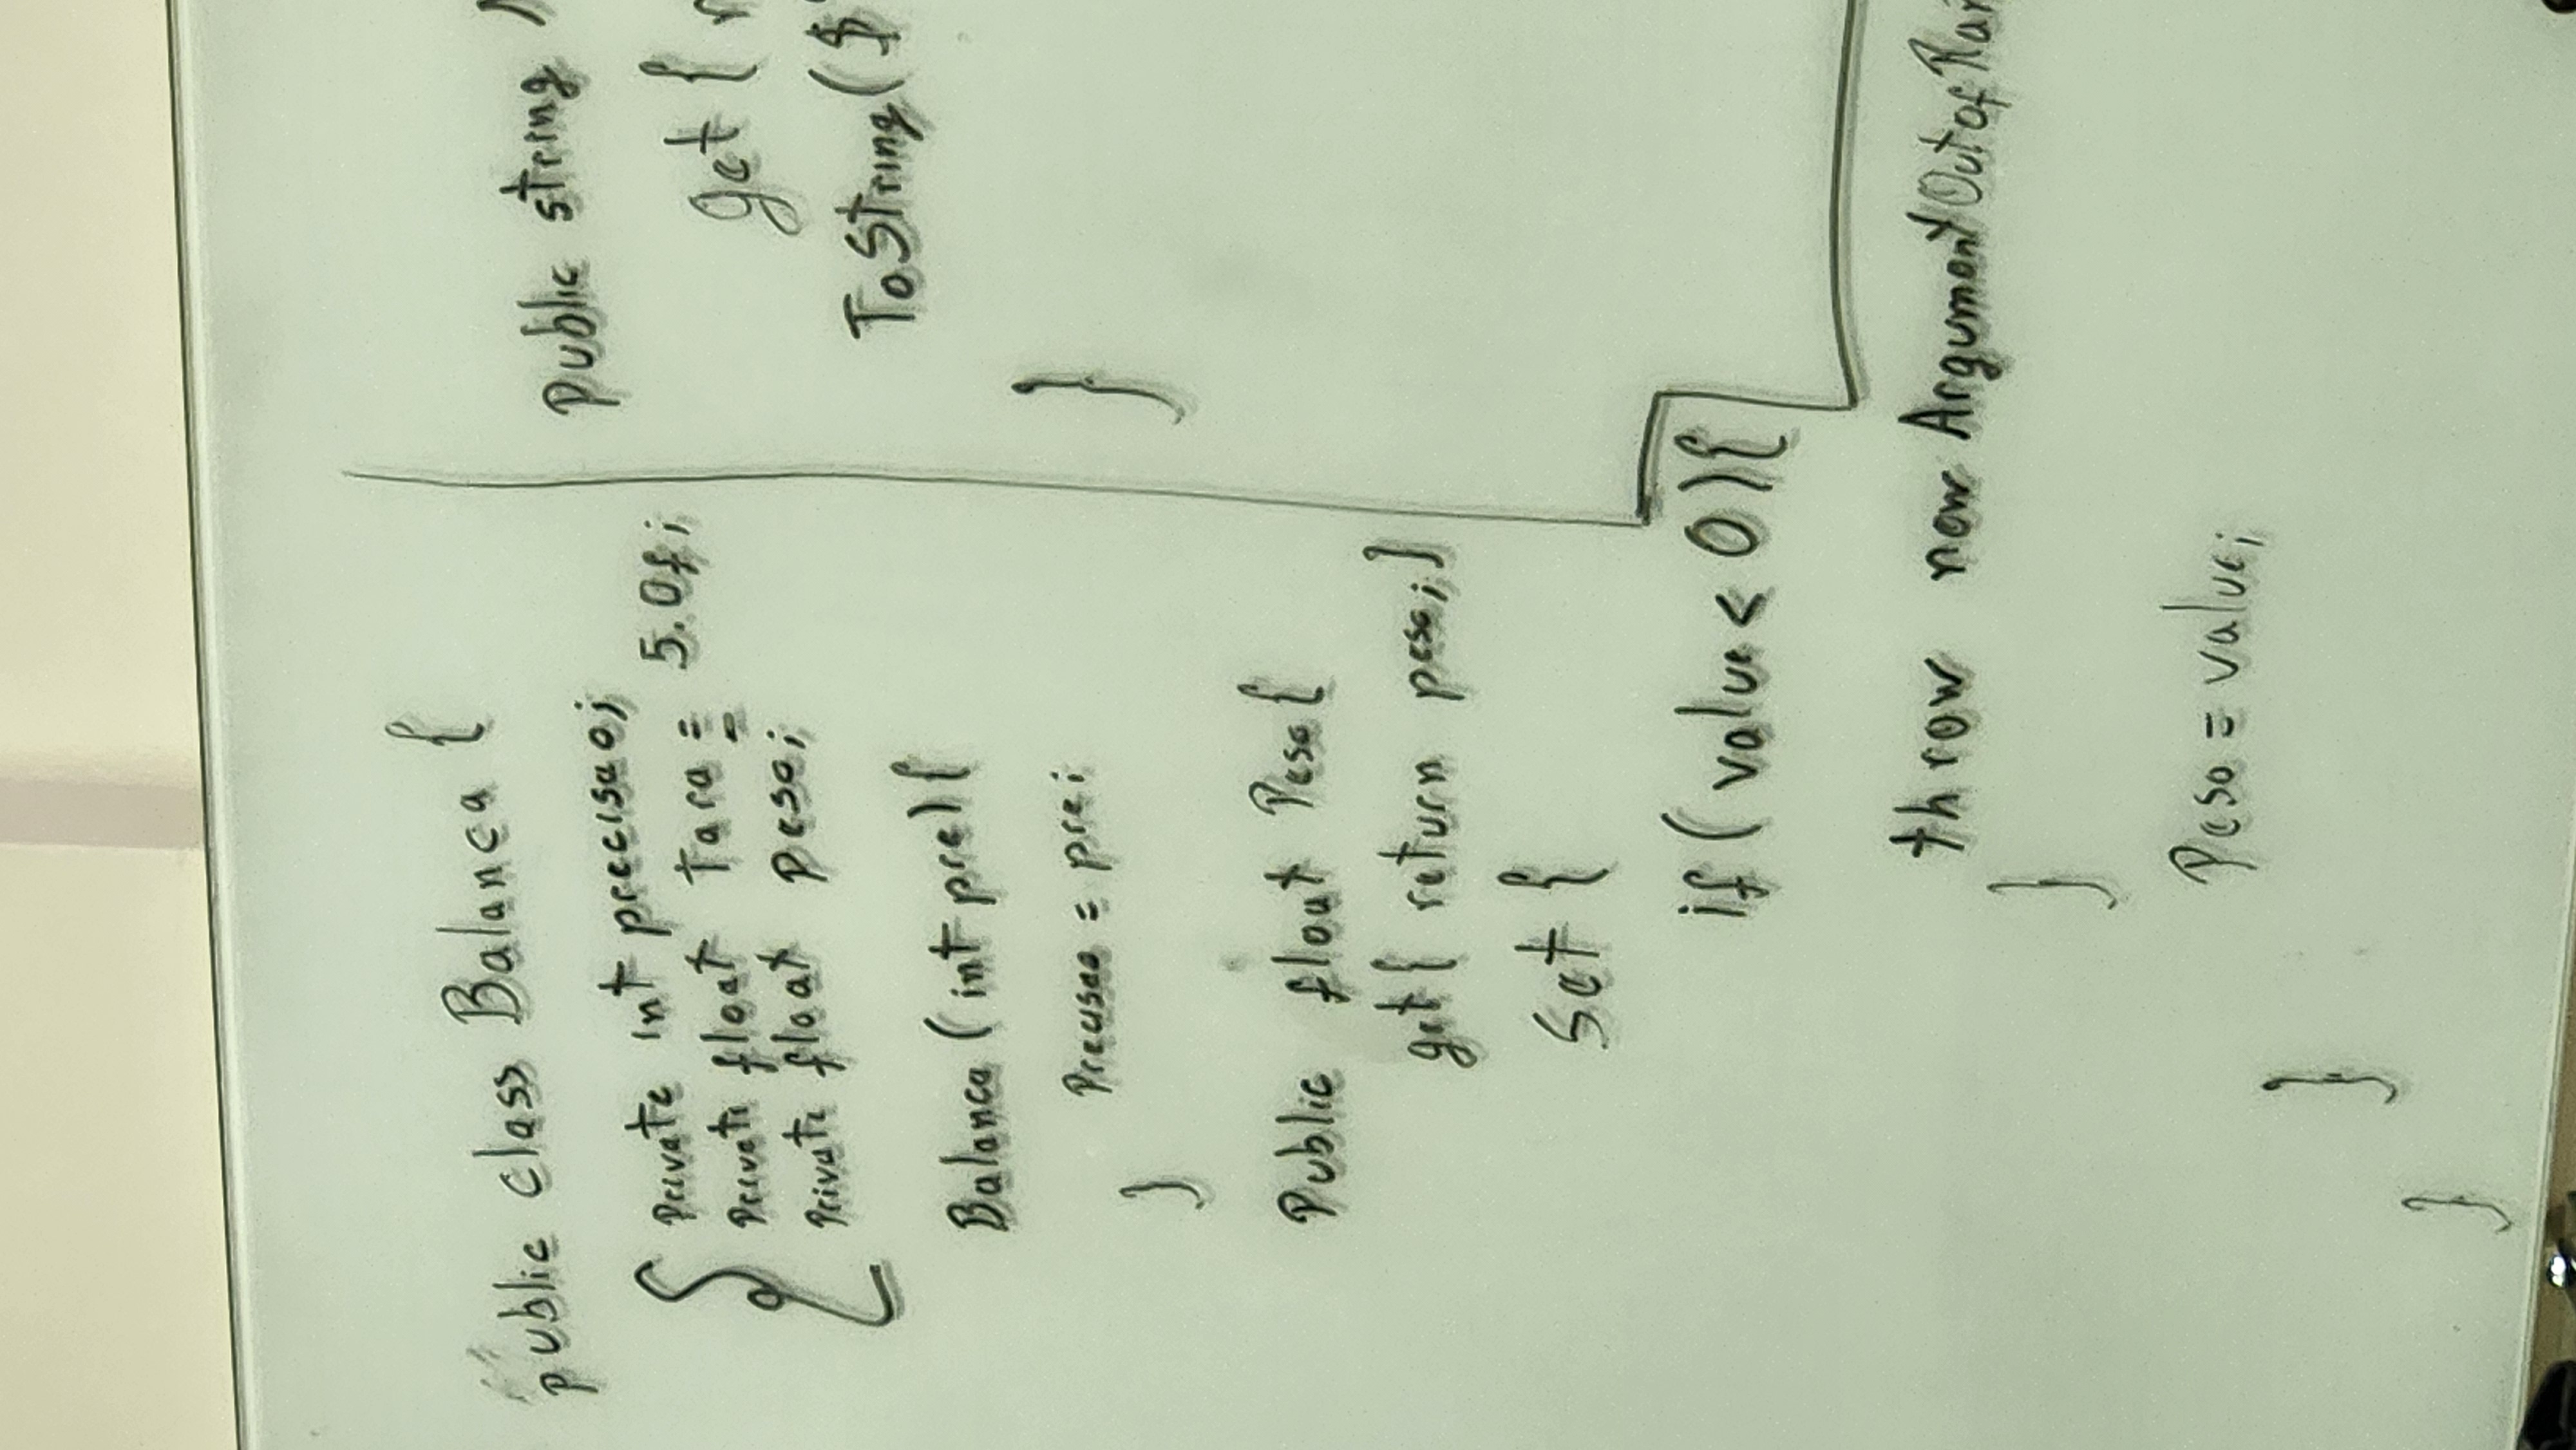 public class Balanca {
Private int precisao;
Private float Tara = 5.0f;
Private float peso;
Balanca (int pre) {
Precisao = pre;
}
Public float Peso {
get { return peso; }
set {
if ( value < 0 ) {
throw new ArgumentOutofRan
}
Peso = value;
}
}
Public string
get {
ToString( $"
}